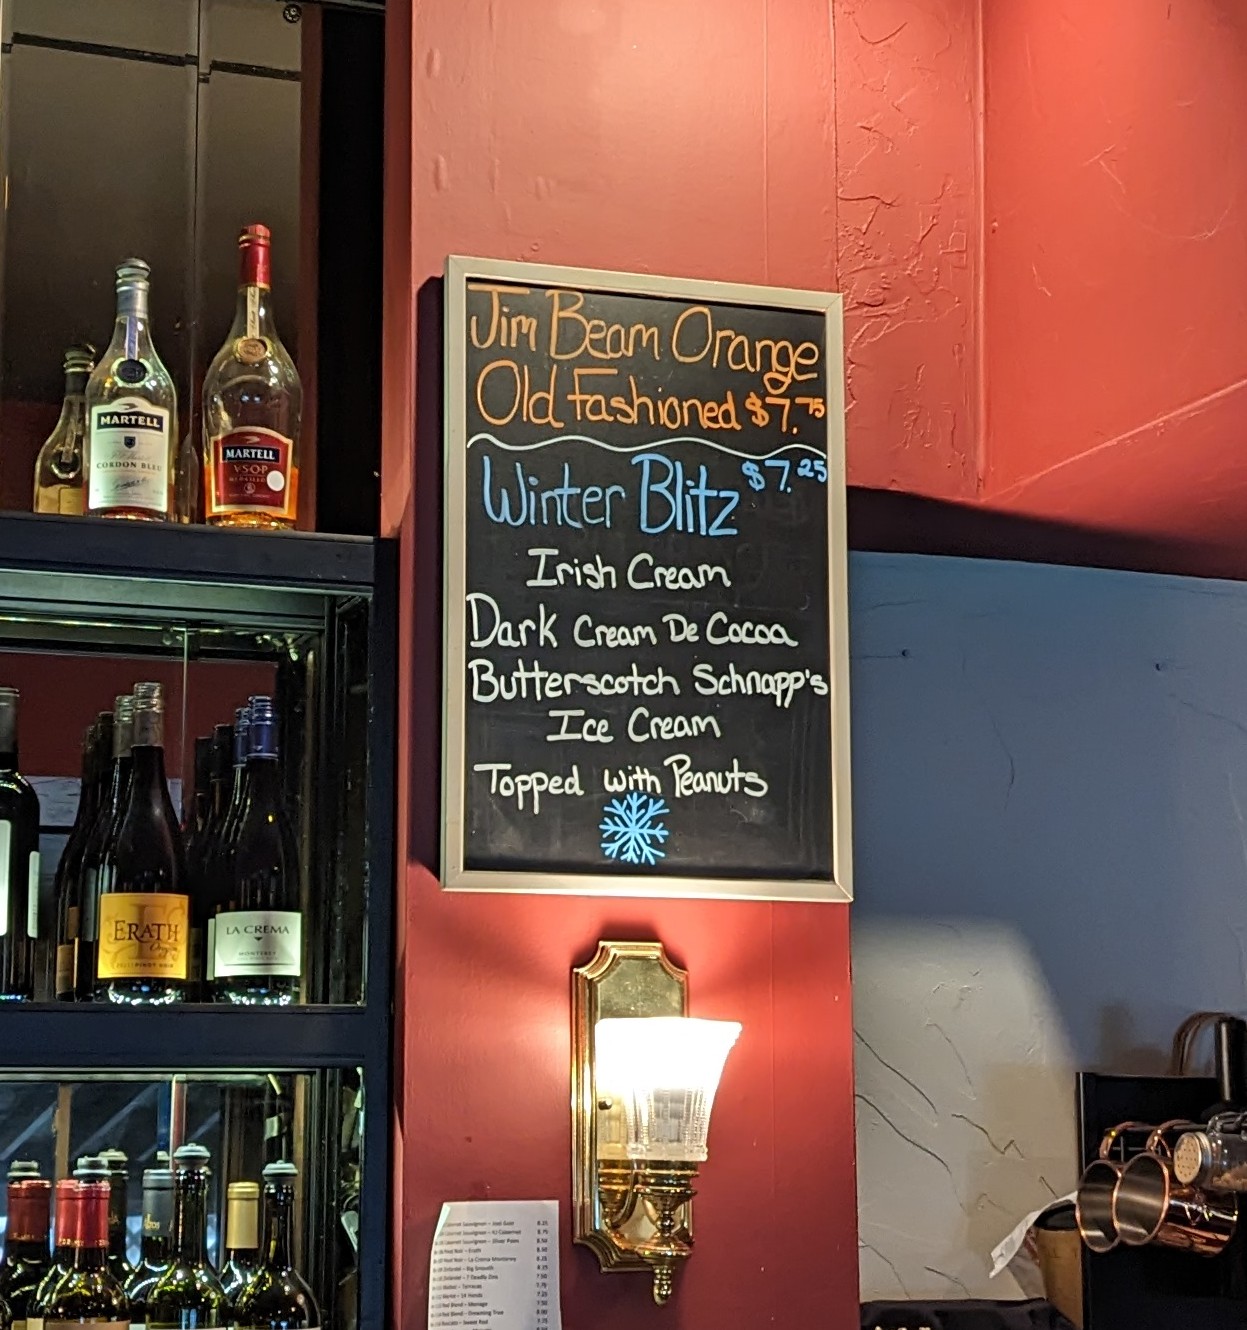 Jim Beam Orange
Old Fashioned $7.75
Winter Blitz $7.25
Irish Cream
Dark Cream De Cocoa
Butterscotch Schnapp's
Ice Cream
Topped with Peanuts
MARTELL
CORDON BLEU
MARTELL
VSOP
ERATH
PINOT NOIR
LA CREMA
MONTEREY